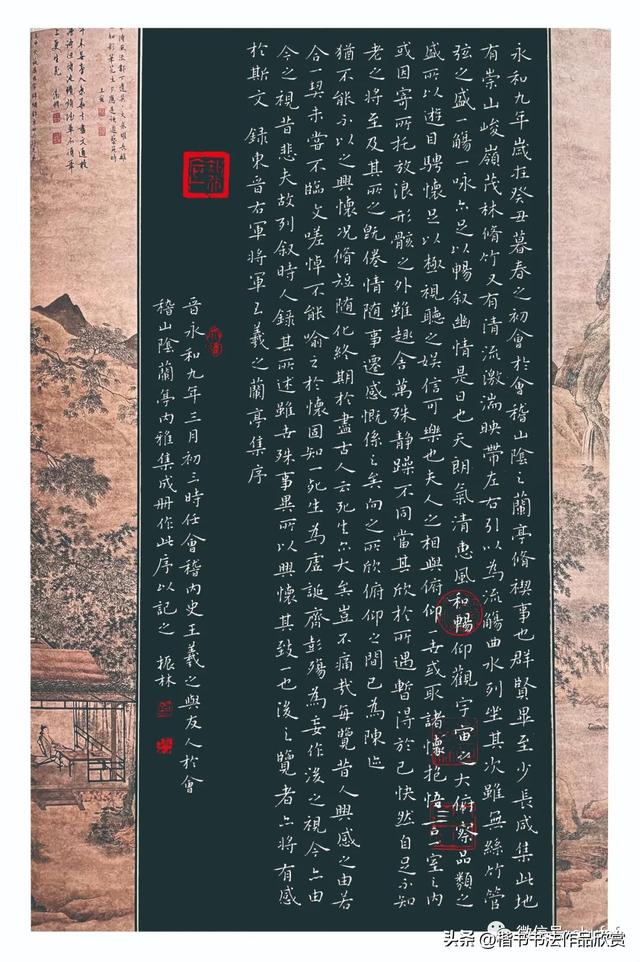 永和九年歲在癸丑暮春之初會於會稽山陰之蘭亭脩禊事也群賢畢至少長咸集此地
有崇山峻嶺茂林脩竹又有清流激湍映帶左右引以為流觴曲水列坐其次雖無絲竹管
弦之盛一觴一咏亦足以暢叙幽情是日也天朗氣清惠風和暢仰觀宇宙之大俯察品類之
盛所以遊目騁懷足以極視聽之娛信可樂也夫人之相與俯仰一世或取諸懷抱悟言一室之内
或因寄所托放浪形骸之外雖趣舍萬殊静躁不同當其欣於所遇暫得於己快然自足不知
老之將至及其所之既倦情隨事遷感慨係之矣向之所欣俯仰之間已為陳迹
猶不能不以之興懷況脩短隨化終期於盡古人云死生亦大矣豈不痛哉每覽昔人興感之由若
合一契未嘗不臨文嗟悼不能喻之於懷固知一死生為虛誕齊彭殤為妄作後之視今亦由
今之視昔悲夫故列叙時人録其所述雖世殊事異所以興懷其致一也後之覽者亦將有感
於斯文 録東晉右軍將軍王羲之蘭亭集序
晉永和九年三月初三時任會稽内史王羲之與友人於會
稽山陰蘭亭内雅集成册作此序以記之 振林
微信号
头条 @楷书书法作品欣赏